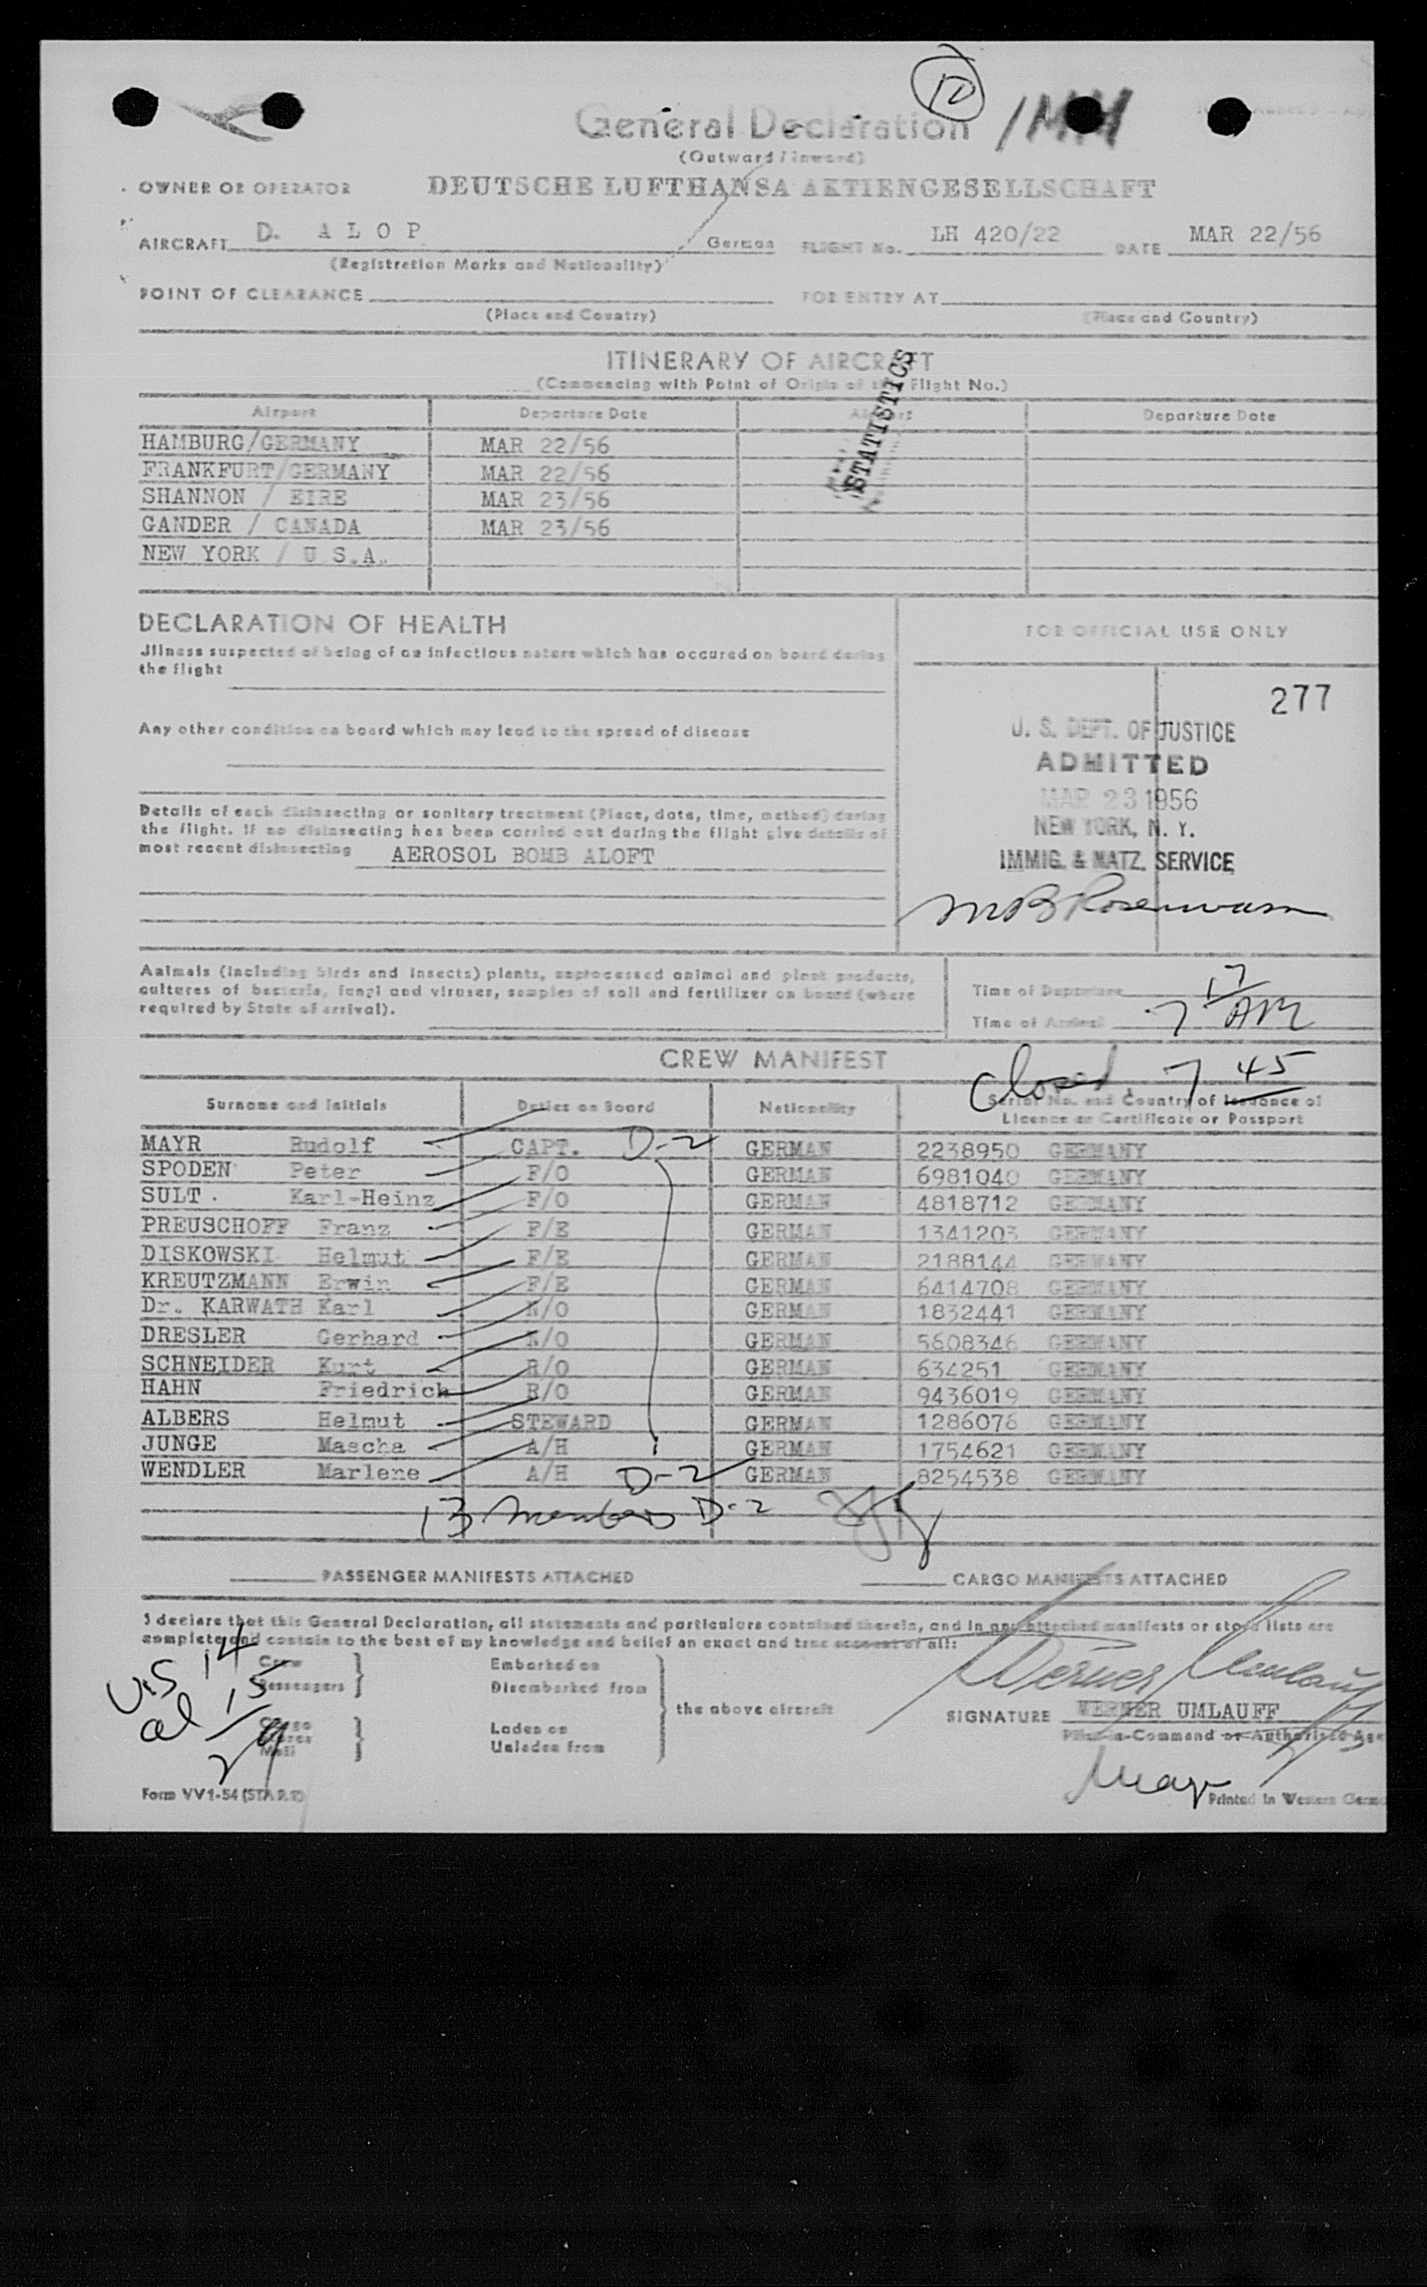 10
General Declaration
(Outward / Inward)
OWNER OR OPERATOR DEUTSCHE LUFTHANSA AKTIENGESELLSCHAFT
AIRCRAFT D. A L O P German FLIGHT No. LH 420/22 DATE MAR 22/56
(Registration Marks and Nationality)
POINT OF CLEARANCE FOR ENTRY AT
(Place and Country) (Place and Country)
ITINERARY OF AIRCRAFT
(Commencing with Point of Origin of the Flight No.)
STATISTICS
Airport Departure Date Airport Departure Date
HAMBURG/GERMANY MAR 22/56
FRANKFURT/GERMANY MAR 22/56
SHANNON / EIRE MAR 23/56
GANDER / CANADA MAR 23/56
NEW YORK / U S.A.
DECLARATION OF HEALTH
Illness suspected of being of an infectious nature which has occured on board during
the flight
Any other condition on board which may lead to the spread of disease
Details of each disinsecting or sanitary treatment (Place, date, time, method) during
the flight. If no disinsecting has been carried out during the flight give details of
most recent disinsecting AEROSOL BOMB ALOFT
FOR OFFICIAL USE ONLY
277
U. S. DEPT. OF JUSTICE
ADMITTED
MAR 23 1956
NEW YORK, N. Y.
IMMIG. & NATZ. SERVICE
Animals (including birds and insects) plants, unprocessed animal and plant products,
cultures of bacteria, fungi and viruses, samples of soil and fertilizer on board (where
required by State of arrival).
Time of Departure
Time of Arrival 7 17 AM
CREW MANIFEST
Closed 7 45
Surname and Initials Duties on Board Nationality Serial No. and Country of Issuance of
Licence or Certificate or Passport
MAYR Rudolf CAPT. D-2 GERMAN 2238950 GERMANY
SPODEN Peter F/O GERMAN 6981040 GERMANY
SULT. Karl-Heinz F/O GERMAN 4818712 GERMANY
PREUSCHOFF Franz F/E GERMAN 1341203 GERMANY
DISKOWSKI Helmut F/E GERMAN 2188144 GERMANY
KREUTZMANN Erwin F/E GERMAN 6414708 GERMANY
Dr. KARWATH Karl N/O GERMAN 1832441 GERMANY
DRESLER Gerhard N/O GERMAN 5608346 GERMANY
SCHNEIDER Kurt R/O GERMAN 634251 GERMANY
HAHN Friedrich R/O GERMAN 9436019 GERMANY
ALBERS Helmut STEWARD GERMAN 1286076 GERMANY
JUNGE Mascha A/H GERMAN 1754621 GERMANY
WENDLER Marlene A/H D-2 GERMAN 8254538 GERMANY
13 members D-2
PASSENGER MANIFESTS ATTACHED CARGO MANIFESTS ATTACHED
I declare that this General Declaration, all statements and particulars contained therein, and in any attached manifests or store lists are
complete and contain to the best of my knowledge and belief an exact and true account of all:
Crew
Passengers
Embarked on
Disembarked from
Cargo
Stores
Mail
Laden on
Unladen from
the above aircraft
US 14
al 15
29
Werner Umlauff
SIGNATURE WERNER UMLAUFF
Pilot-in-Command or Authorised Age
Mayr
Form VV1-54 (STA 2.2)
Printed in Western Germa